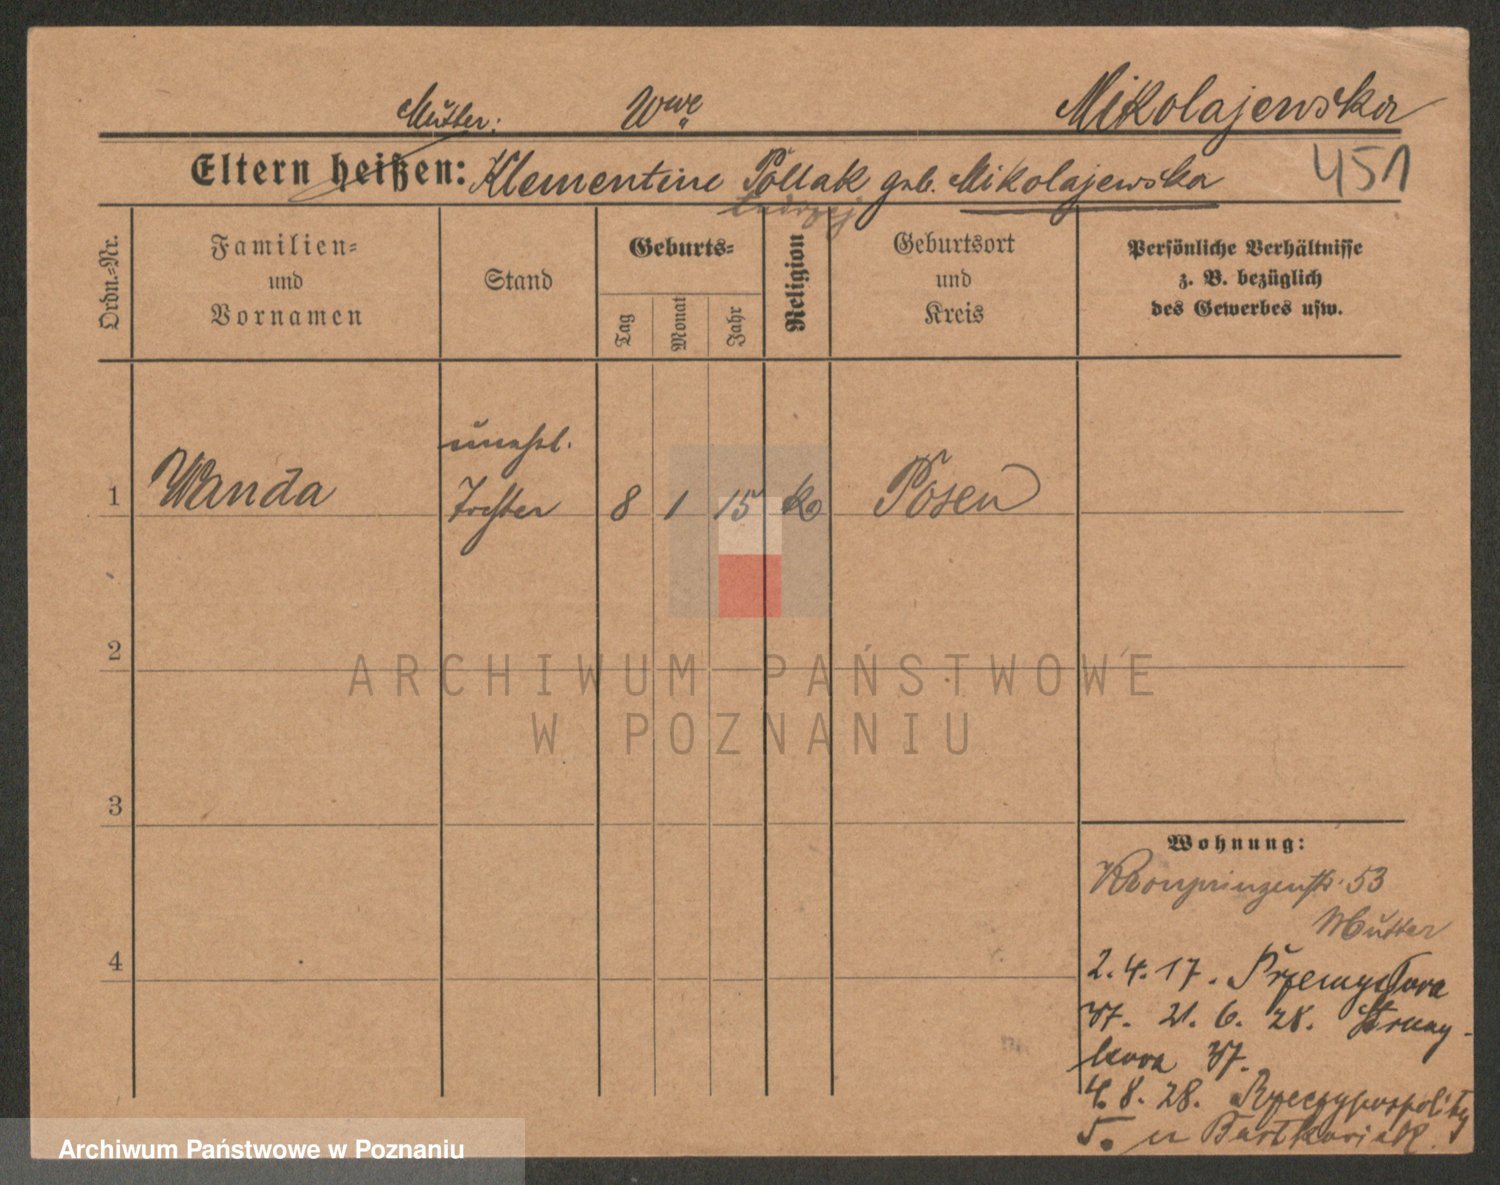 Mikolajewska
Mutter: Wwe
Eltern heißen: Klementine Pollak geb. Mikolajewska 451
Andrzej
Ordn.=Nr.
Familien=
und
Vornamen
Stand
Geburts=
Tag
Monat
Jahr
Religion
Geburtsort
und
Kreis
Persönliche Verhältnisse
z. B. bezüglich
des Gewerbes usw.
unehel.
1 Wanda Tochter 8 1 15 k Posen
2
ARCHIWUM PAŃSTWOWE
W POZNANIU
3
Wohnung:
Kronprinzenstr. 53
Mutter
4
2.4.17. Przemysłowa
37. 21. 6. 28.
37.
4. 8. 28. Rzeczypospolitej
5. u Bartkowiak.
Archiwum Państwowe w Poznaniu